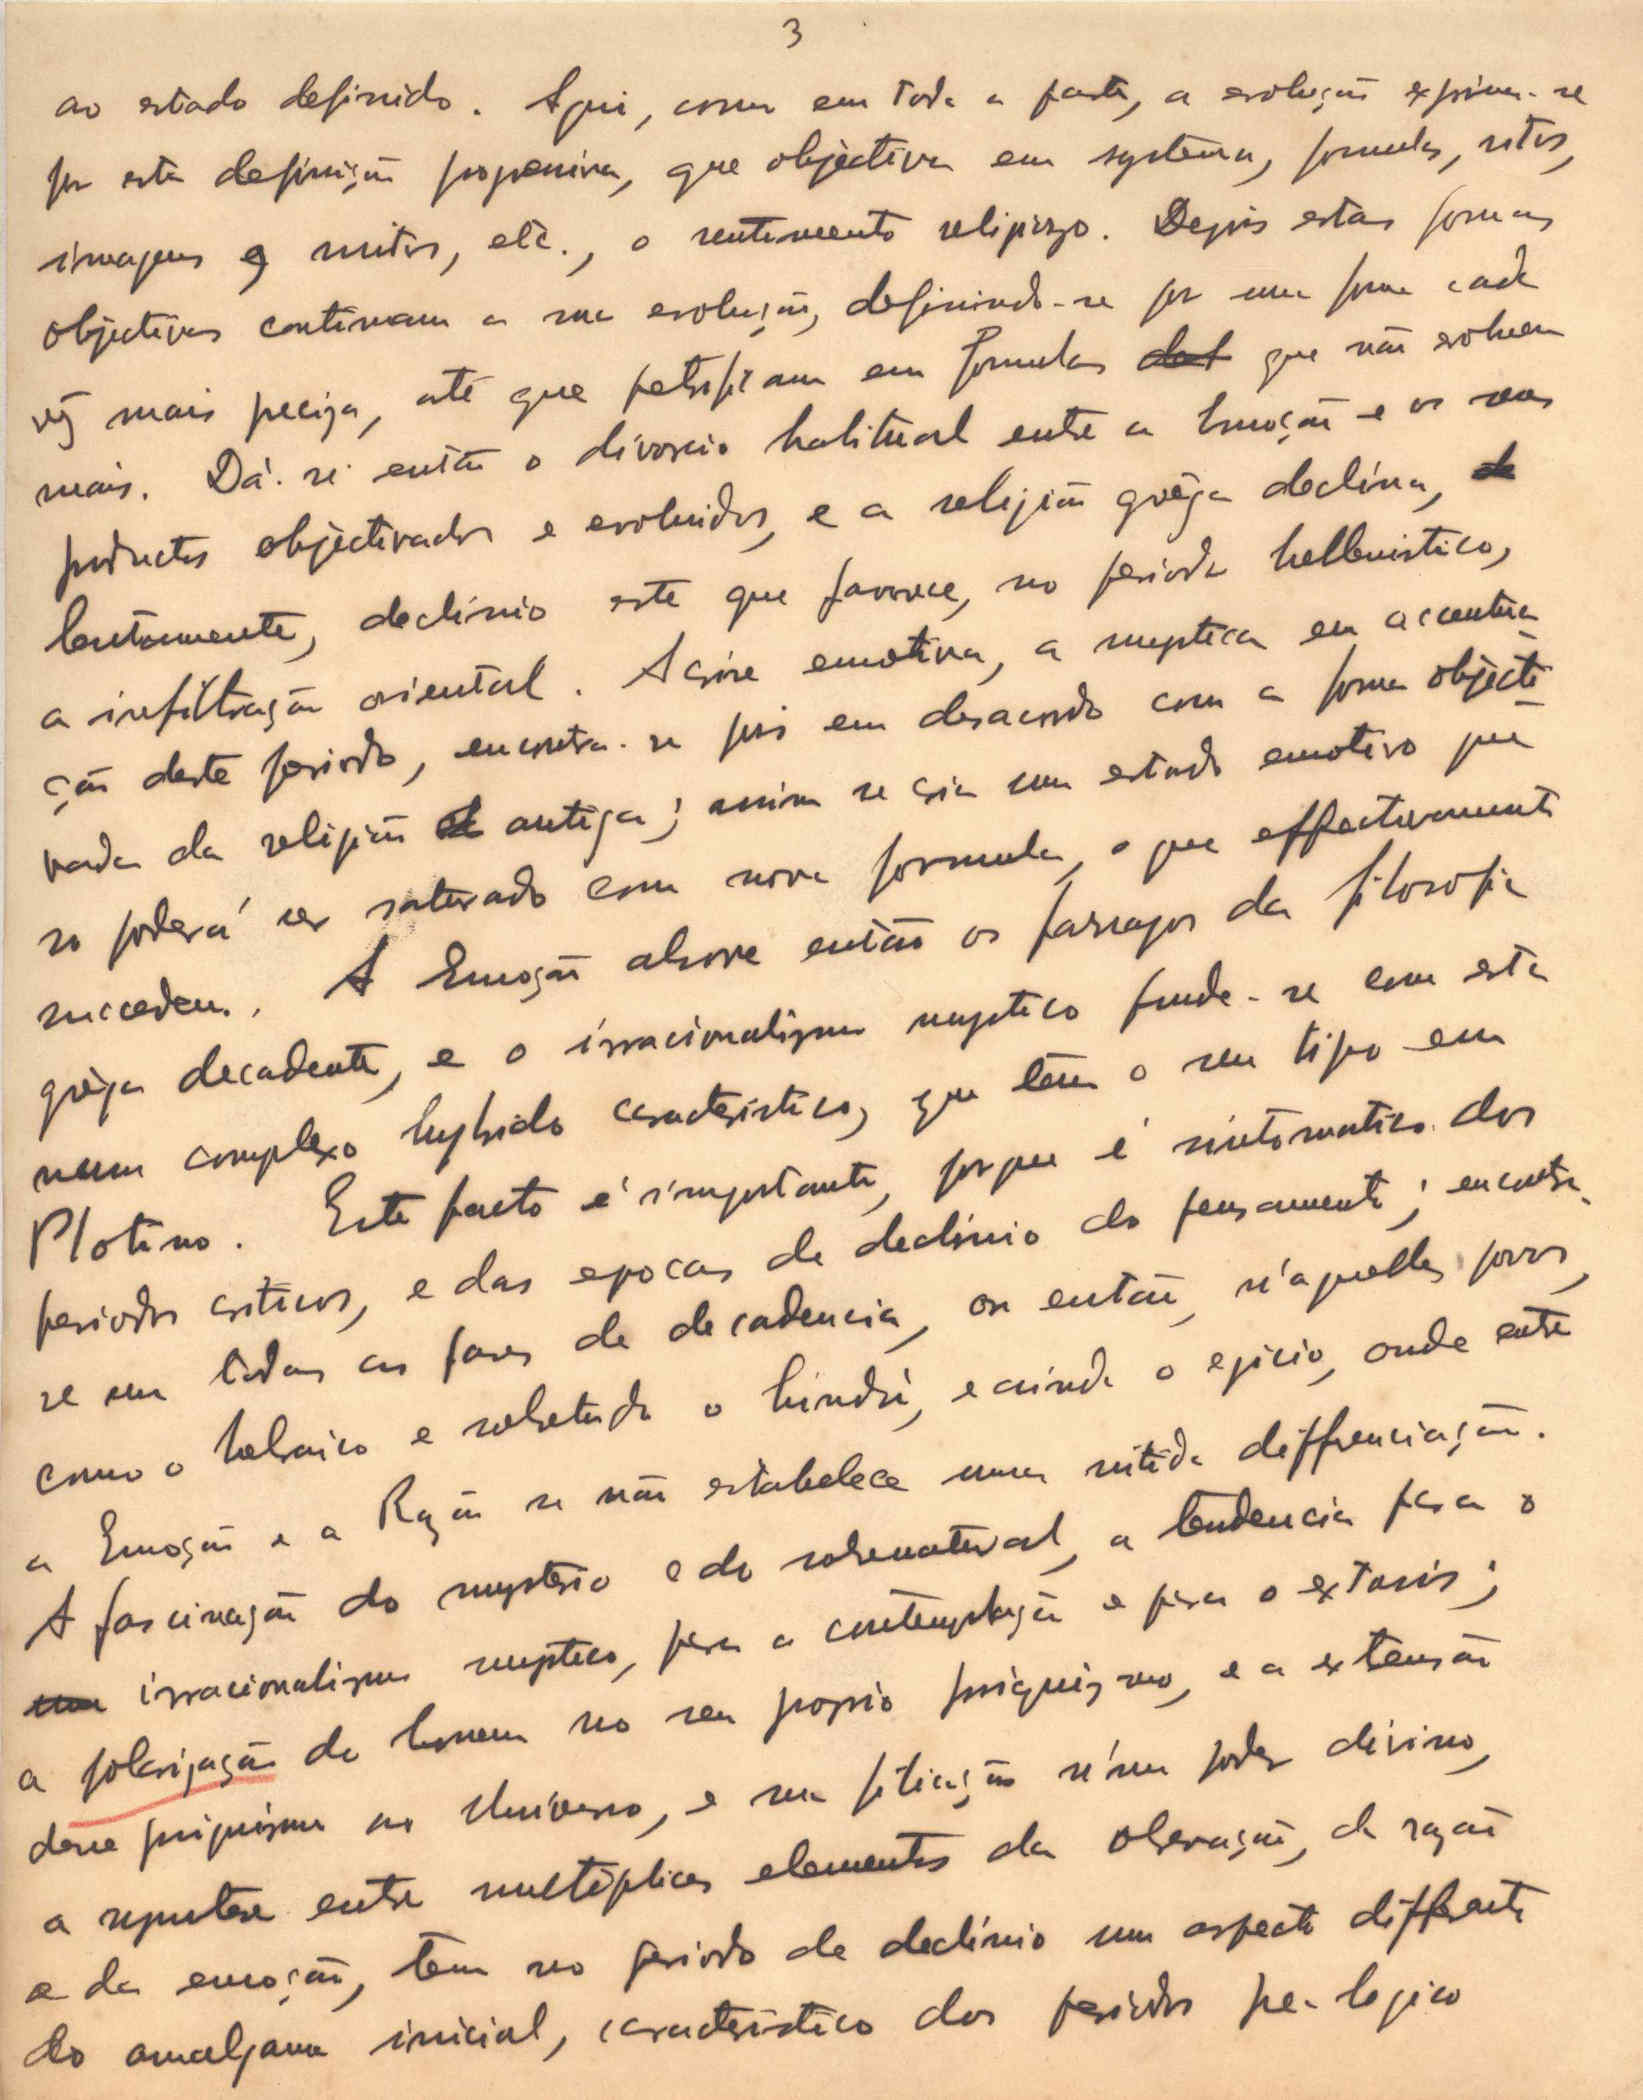 3
ao estado definido. Aqui, como em toda a parte, a evolução exprime-se
por esta definição progressiva, que objectiva em systema, formulas, ritos,
imagens e mitos, etc., o sentimento religiozo. Depois estas formas
objectivas continuam a sua evolução, definindo-se por uma forma cada
vez mais preciza, até que petrificam em formulas que não evoluem
mais. Dá-se então o divorcio habitual entre a Emoção e os seus
productos objectivados e evoluidos, e a religião grêga declina,
lentamente, declinio este que favorece, no periodo hellenistico,
a infiltração oriental. A crise emotiva, a mystica em accentua-
ção deste periodo, encontra-se pois em desacordo com a forma objecti-
vada da religião antiga; assim se cria um estado emotivo que
so poderá ser saturado com nova formula, o que effectivamente
succedeu. A Emoção absorve então os farrapos da filosofia
grêga decadente, e o irracionalismo mystico funde-se com esta
num complexo hybrido caracteristico, que tem o seu tipo em
Plotino. Este facto é importante, porque é sintomatico dos
periodos criticos, e das epocas de declinio do pensamento; encontra-
se em todas as fases de decadencia, ou então, n'aquelles povos,
como o hebraico e sobretudo o hindú, e ainda o egicio, onde entre
a Emoção e a Razão se não estabelece uma nitida differenciação.
A fascinação do mysterio e do sobrenatural, a tendencia para o
irracionalismo mystico, para a contemplação e para o extasis;
a polarização do homem no seu proprio psiquismo, e a extensão
desse psiquismo ao Universo, e sua n'um poder divino,
a entre multiplices elementos da observação, da razão
e da emoção, tem no periodo de declinio um aspecto differente
do amalgama inicial, caracteristico dos periodos pre-logico